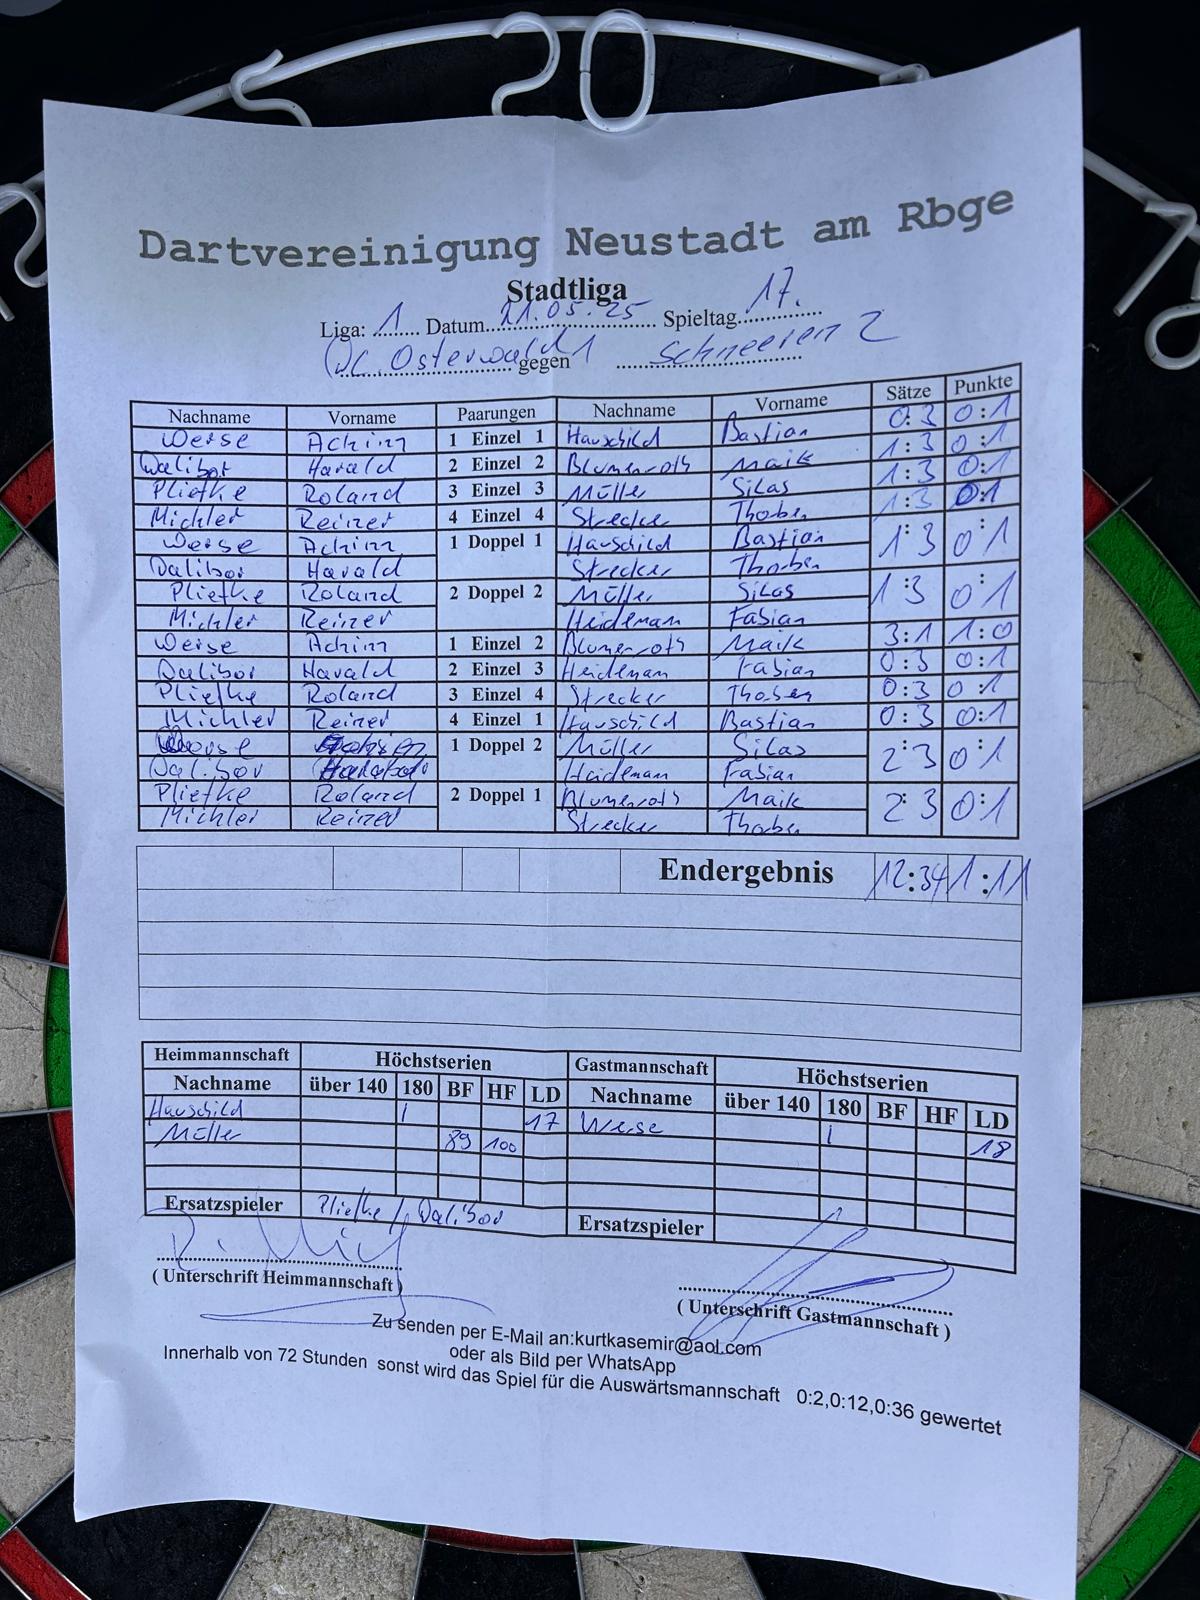 20
Dartvereinigung Neustadt am Rbge
Stadtliga
Liga: 1 Datum 21.05.25 Spieltag 17.
DC Osterwald 1 gegen Schneeren 2
Nachname Vorname Paarungen Nachname Vorname Sätze Punkte
Weise Achim 1 Einzel 1 Hauschild Bastian 0:3 0:1
Dalibor Harald 2 Einzel 2 Blumenroth Maik 1:3 0:1
Pliefke Roland 3 Einzel 3 Müller Silas 1:3 0:1
Michler Reiner 4 Einzel 4 Strecker Thorben 1:3 0:1
Weise Achim 1 Doppel 1 Hauschild Bastian 1:3 0:1
Dalibor Harald Strecker Thorben
Pliefke Roland 2 Doppel 2 Müller Silas 1:3 0:1
Michler Reiner Heideman Fabian
Weise Achim 1 Einzel 2 Blumenroth Maik 3:1 1:0
Dalibor Harald 2 Einzel 3 Heideman Fabian 0:3 0:1
Pliefke Roland 3 Einzel 4 Strecker Thorben 0:3 0:1
Michler Reiner 4 Einzel 1 Hauschild Bastian 0:3 0:1
Weise Achim 1 Doppel 2 Müller Silas 2:3 0:1
Dalibor Harald Heideman Fabian
Pliefke Roland 2 Doppel 1 Blumenroth Maik 2:3 0:1
Michler Reiner Strecker Thorben
Endergebnis 12:34 1:11
Heimmannschaft Höchstserien Gastmannschaft Höchstserien
Nachname über 140 180 BF HF LD Nachname über 140 180 BF HF LD
Hauschild 1 17 Weise 1 18
Müller 89 100
Ersatzspieler Pliefke / Dalibor Ersatzspieler
( Unterschrift Heimmannschaft ) ( Unterschrift Gastmannschaft )
Zu senden per E-Mail an:kurtkasemir@aol.com
oder als Bild per WhatsApp
Innerhalb von 72 Stunden sonst wird das Spiel für die Auswärtsmannschaft 0:2,0:12,0:36 gewertet